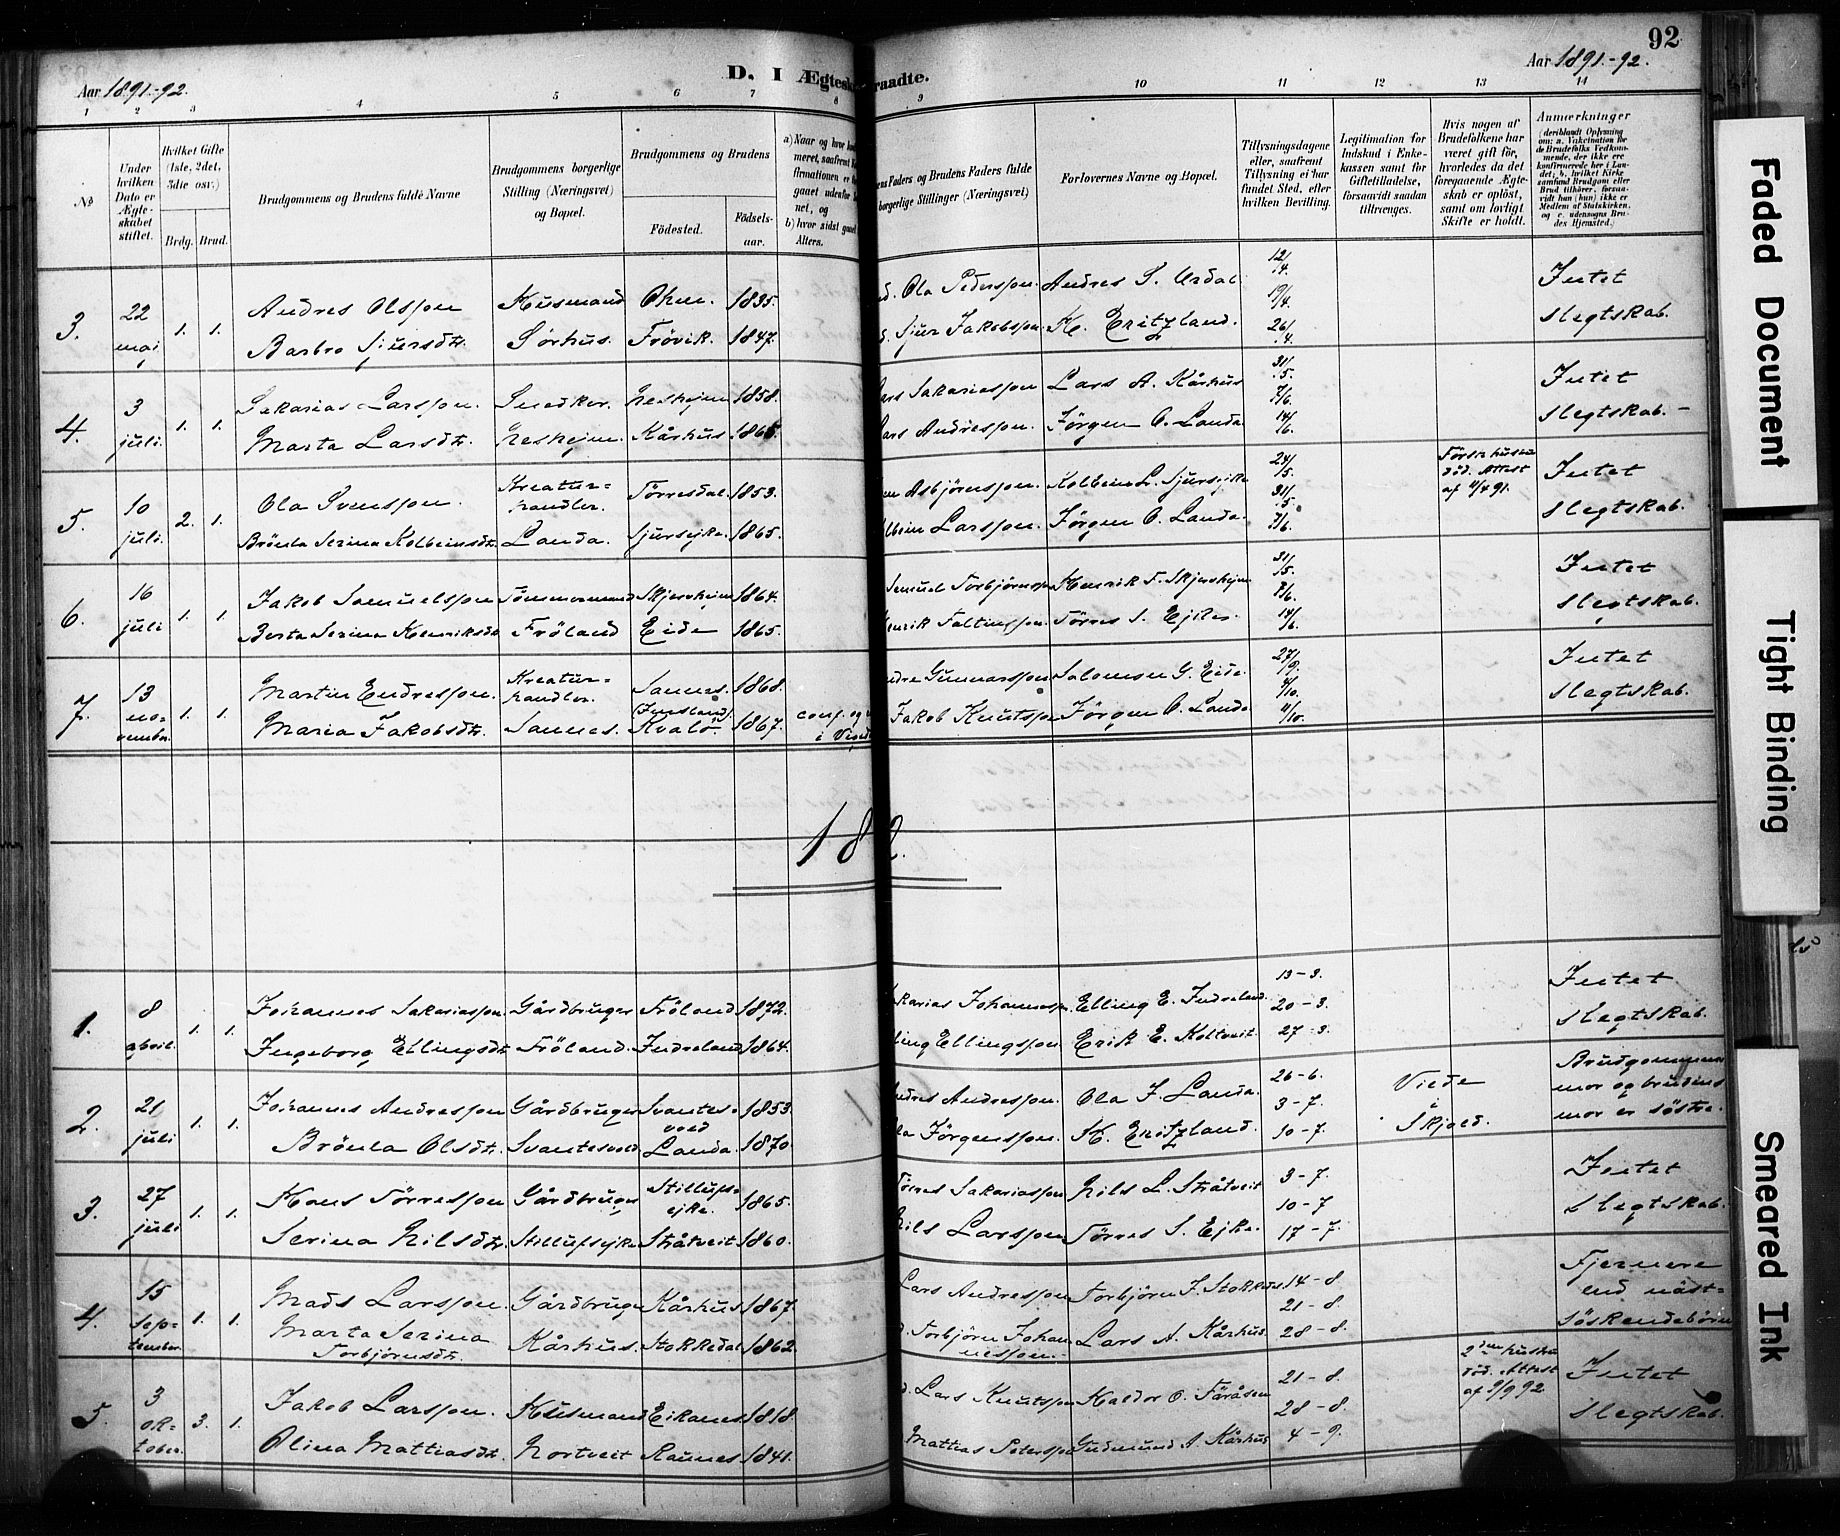 92
Aar 1891-92.
D. I Ægtesk raadte.
Aar 1891-92.
1 2 3 4 5 6 7 8 9 10 11 12 13 14
No
Under hvilken Dato er Ægteskabet stiftet.
Hvilket Gifte (1ste, 2det, 3die osv.)
Brdg. Brud.
Brudgommens og Brudens fulde Navne
Brudgommens borgerlige Stilling (Næringsvei) og Bopæl.
Brudgommens og Brudens
Födested.
Födselsaar.
a) Naar og hvor
meret, saafremt
firmationen er
gaaet udenfor
net, og
b) hvor sidst gaaet
Alters.
ens Faders og Brudens Faders fulde
borgerlige Stillinger (Næringsvei)
Forlovernes Navne og Bopæl.
Tillysningsdagene eller, saafremt Tillysning ei har fundet Sted, efter hvilken Bevilling.
Legitimation for Indskud i Enkekassen samt for Giftetilladelse, forsaavidt saadan tiltrænges.
Hvis nogen af Brudefolkene har været gift för, hvorledes da det foregaaende Ægteskab er oplöst, samt om lovligt Skifte er holdt.
Anmærkninger (deriblandt Oplysning om: a. Vakcination for de Brudefolks Vedkommende, der ikke ere konfirmerede her i Landet; b. hvilket Kirkesamfund Brudgom eller Brud tilhörer, forsaavidt han (hun) ikke er Medlem af Statskirken, og c. udensogns Brudes Hjemsted.)
3. 22 mai 1. 1. Andres Olsson Husmand Ohm. 1835. Ola Pedersson Andres S. Urdal 12/4. Intet
Barbro Sjursdtr. Sörhus. Frövik. 1847. Sjur Jakobsson K. Eritzland. 19/4. 26/4. Slegtskab.
4. 3 juli. 1. 1. Sakarias Larsson. Snedker. Neshejm 1858. Sakariasson Lars A. Kårhus 31/5. 7/6. Intet
Marta Larsdtr. Neshejm. Kårhus 1865. Andresson. Jörgen O. Landa. 14/6. Slegtskab. -
5. 10 juli. 2. 1. Ola Svensson. Kreaturhandler. Torresdal 1853. Asbjörnsson. Kolbein L. Sjursejke 24/5. 31/5. Förste hustru död. Attest af 11/4 91. Intet
Brönla Serina Kolbeinsdtr. Landa. Sjursejke. 1865. Larsson. Jörgen O. Landa. 7/6. Slegtskab.
6. 16 juli 1. 1. Jakob Samuelsson Tömmermand Skjersheim 1864. Samuel Torbjörnsson Henrik F. Skjersheim 31/5. 7/6. Intet
Berta Serina Henriksdtr Fröland Eide 1865. Faltinsson. Törres S. Ejke. 14/6. Slegtskab.
7. 13 november. 1. 1. Martin Endresson. Kreaturhandler. Sannes. 1868. Gunnarsson Salomon G. Eide. 27/9. 4/10. Intet
Maria Jakobsdtr. Sannes. Kvalö 1867. conf. og i Jakob Knutsson Jörgen O. Landa 11/10. Slegtskab.
18 2.
1. 8 april. 1. 1. Johannes Sakariasson. Gårdbruger Fröland 1872. Johannesson Elling E. Indreland. 13-3. 20-3. Intet
Ingeborg Ellingsdtr. Fröland. Indreland 1864. Ellingsson. Erik E. Koltveit 27-3. Slegtskab.
2. 21 juli 1. 1. Johannes Andresson Gårdbruger Svantesvold 1853. Andresson. Ola J. Landa. 26-6. 3-7. Viede i Skjold. Brudgommens mor og brudens
Brönla Olsdtr. Svantesvold Landa. 1870. Jörgensson. K. Eritzland. 10-7. mor er söstre.
3. 27 juli 1. 1. Hans Törresson Gårdbruger Stillufsejke. 1865. Törres Sakariasson Nils L. Stråtveit 3-7. 10-7 Intet
Serina Nilsdtr. Stillufsejke Stråtveit 1860. Nils Larsson Törres S. Ejke. 17-7. Slegtskab.
4. 15 september. 1. 1. Mads Larsson. Gårdbruger Kårhus 1867. Lars Andresson Torbjörn J. Stokkedal 14-8. 21-8. Fjernere end näst-
Marta Serina Torbjörnsdtr. Kårhus. Stokkedal 1862. Torbjörn Johannesson. Lars A. Kårhus. 28-8. Söskendebörn
5. 3 oktober. 3. 1. Jakob Larsson. Husmand Eikanes 1818. Lars Knutsson Haldor O. Färåsen 21-8. 28-8. 2den hustru död. Attest af 9/9 92 Intet
Olina Mattiasdtr. Nortveit Raunes 1841. Mattias Petersson Gudmund A. Kårhus 4-9. Slegtskab.
Faded Document
Tight Binding
Smeared Ink